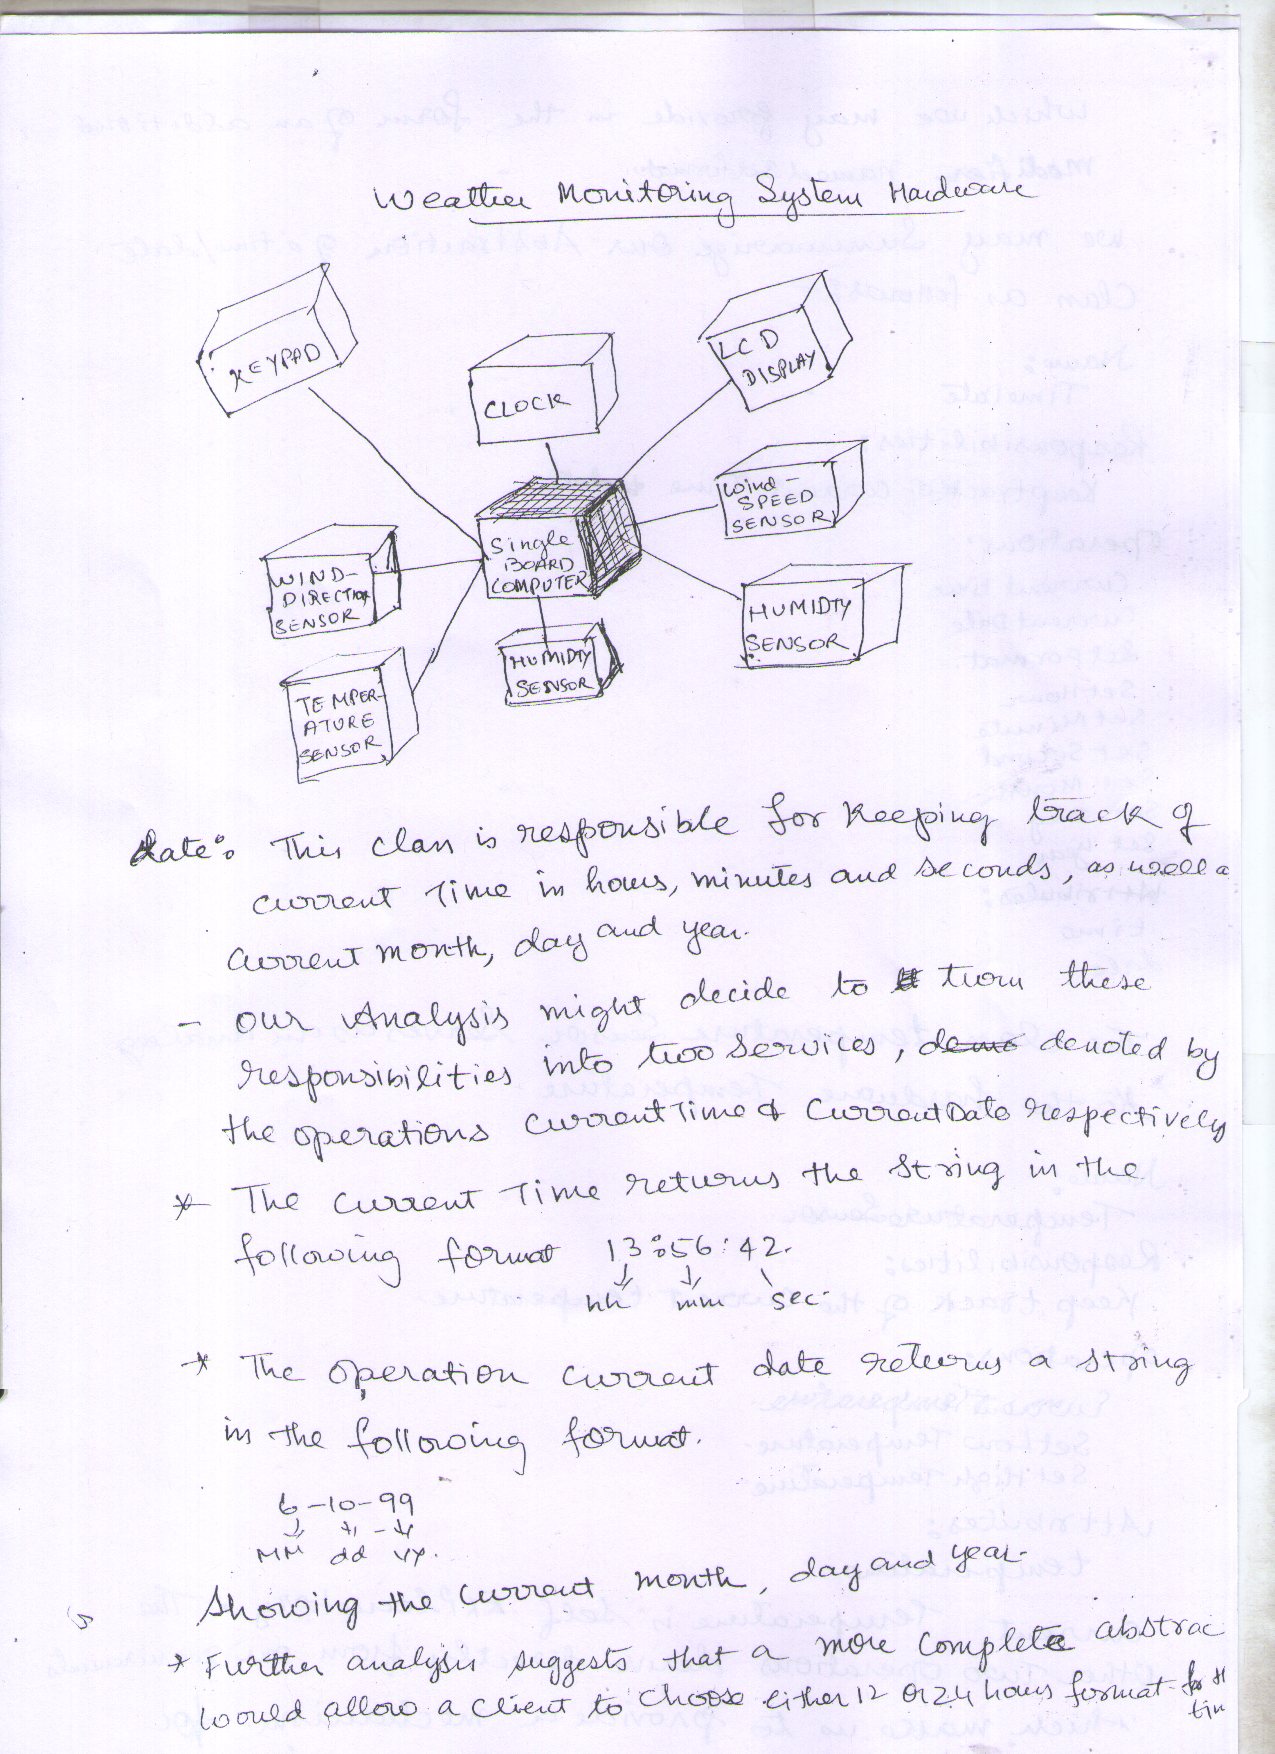 Weather Monitoring System Hardware
KEYPAD
CLOCK
LCD
DISPLAY
Wind-
SPEED
SENSOR
Single
BOARD
COMPUTER
WIND-
DIRECTION
SENSOR
HUMIDTY
SENSOR
HUMIDTY
SENSOR
TEMPER-
ATURE
SENSOR
date: This class is responsible for keeping track of
current Time in hours, minutes and seconds, as well a
current month, day and year.
- our Analysis might decide to turn these
responsibilities into two services, denoted by
the operations currentTime & CurrentDate respectively
* The current Time returns the string in the
following format 13:56:42.
hh mm sec.
* The operation current date returns a string
in the following format.
6-10-99
MM dd yy.
Showing the current month, day and year.
* Further analysis suggests that a more complete abstrac
would allow a client to choose either 12 or 24 hours format for